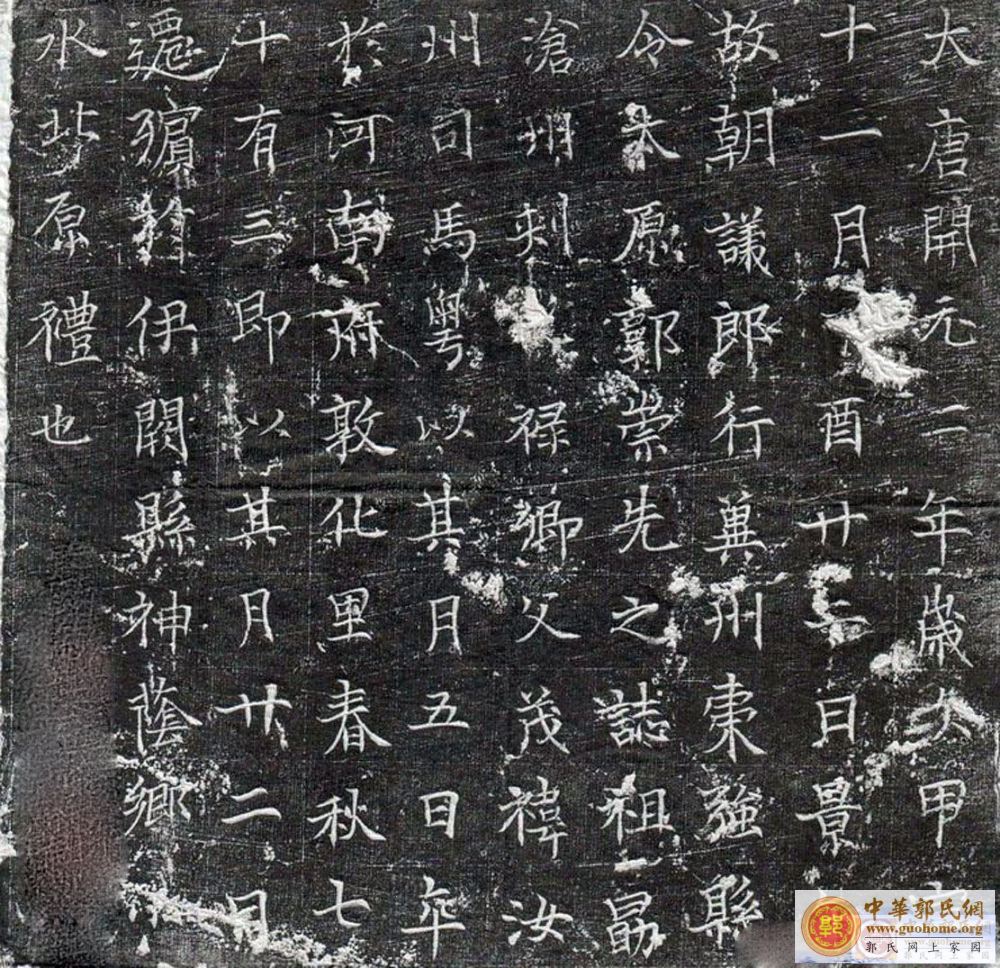 大唐開元二年歲次甲
十一月酉廿二日景
故朝議郎行冀州棗強縣
令太原郭崇先之誌祖勗
滄州刺祿卿父茂禕汝
州司馬粵以其月五日卒
於河南府敦化里春秋七
十有三即以其月廿二日
還殯於伊闕縣神蔭鄉
水北原禮也
中華郭氏網
www.guohome.org
郭氏网上家园